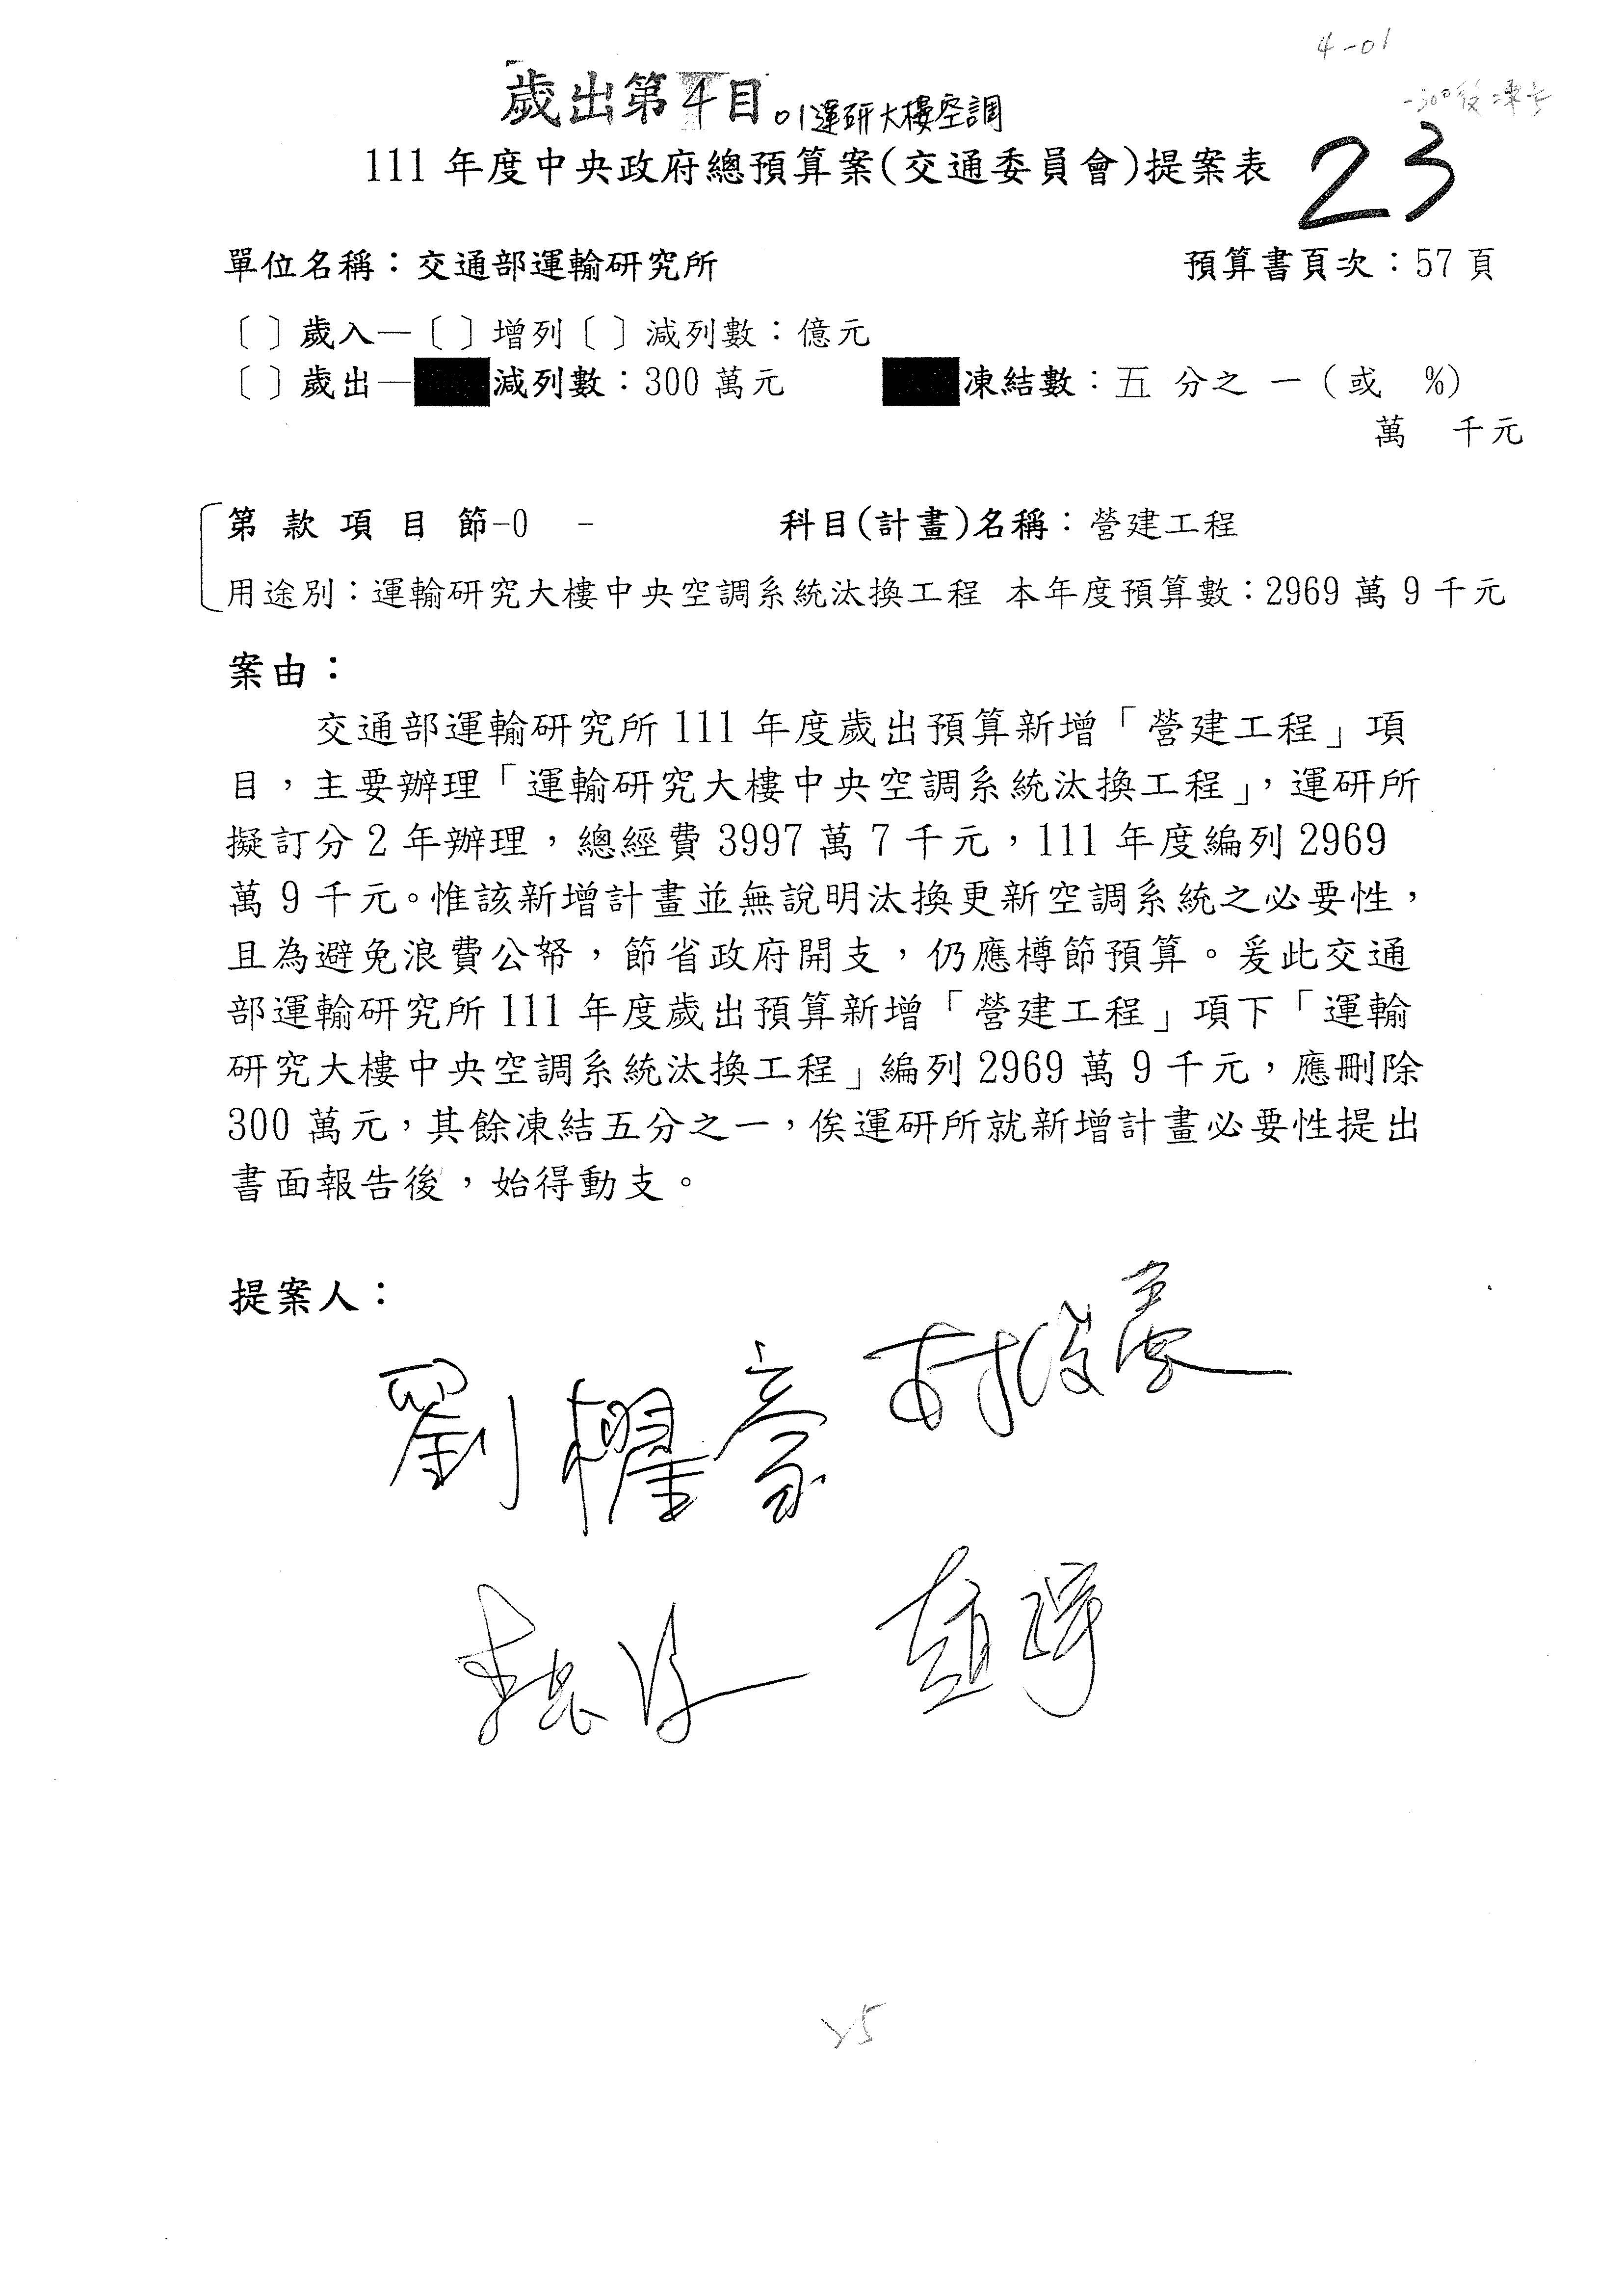 4-01
歲出第4目。01運研大樓空調
-300後凍1/5
111 年度中央政府總預算案(交通委員會)提案表
23
單位名稱：交通部運輸研究所 預算書頁次：57 頁
〔 〕歲入—〔 〕增列〔 〕減列數：億元
〔 〕歲出— 減列數：300 萬元 凍結數：五 分之 一（或 %）
萬 千元
第 款 項 目 節-0 - 科目(計畫)名稱：營建工程
用途別：運輸研究大樓中央空調系統汰換工程 本年度預算數：2969 萬 9 千元
案由：
交通部運輸研究所 111 年度歲出預算新增「營建工程」項
目，主要辦理「運輸研究大樓中央空調系統汰換工程」，運研所
擬訂分 2 年辦理，總經費 3997 萬 7 千元，111 年度編列 2969
萬 9 千元。惟該新增計畫並無說明汰換更新空調系統之必要性，
且為避免浪費公帑，節省政府開支，仍應樽節預算。爰此交通
部運輸研究所 111 年度歲出預算新增「營建工程」項下「運輸
研究大樓中央空調系統汰換工程」編列 2969 萬 9 千元，應刪除
300 萬元，其餘凍結五分之一，俟運研所就新增計畫必要性提出
書面報告後，始得動支。
提案人：
劉櫂豪 林俊憲